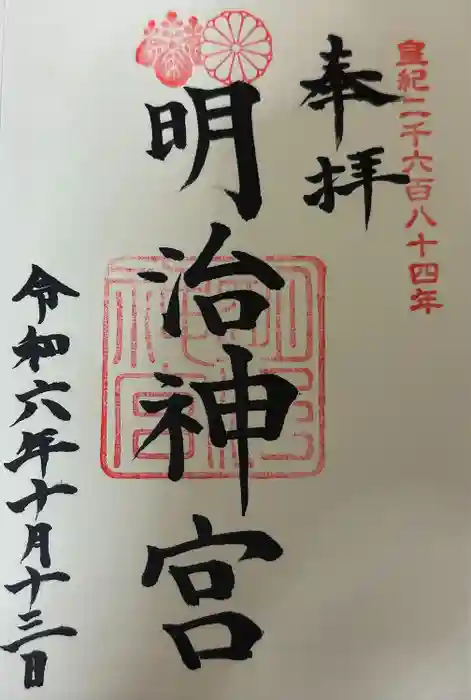 皇紀二千六百八十四年
奉拝
明治神宮
令和六年十月十三日